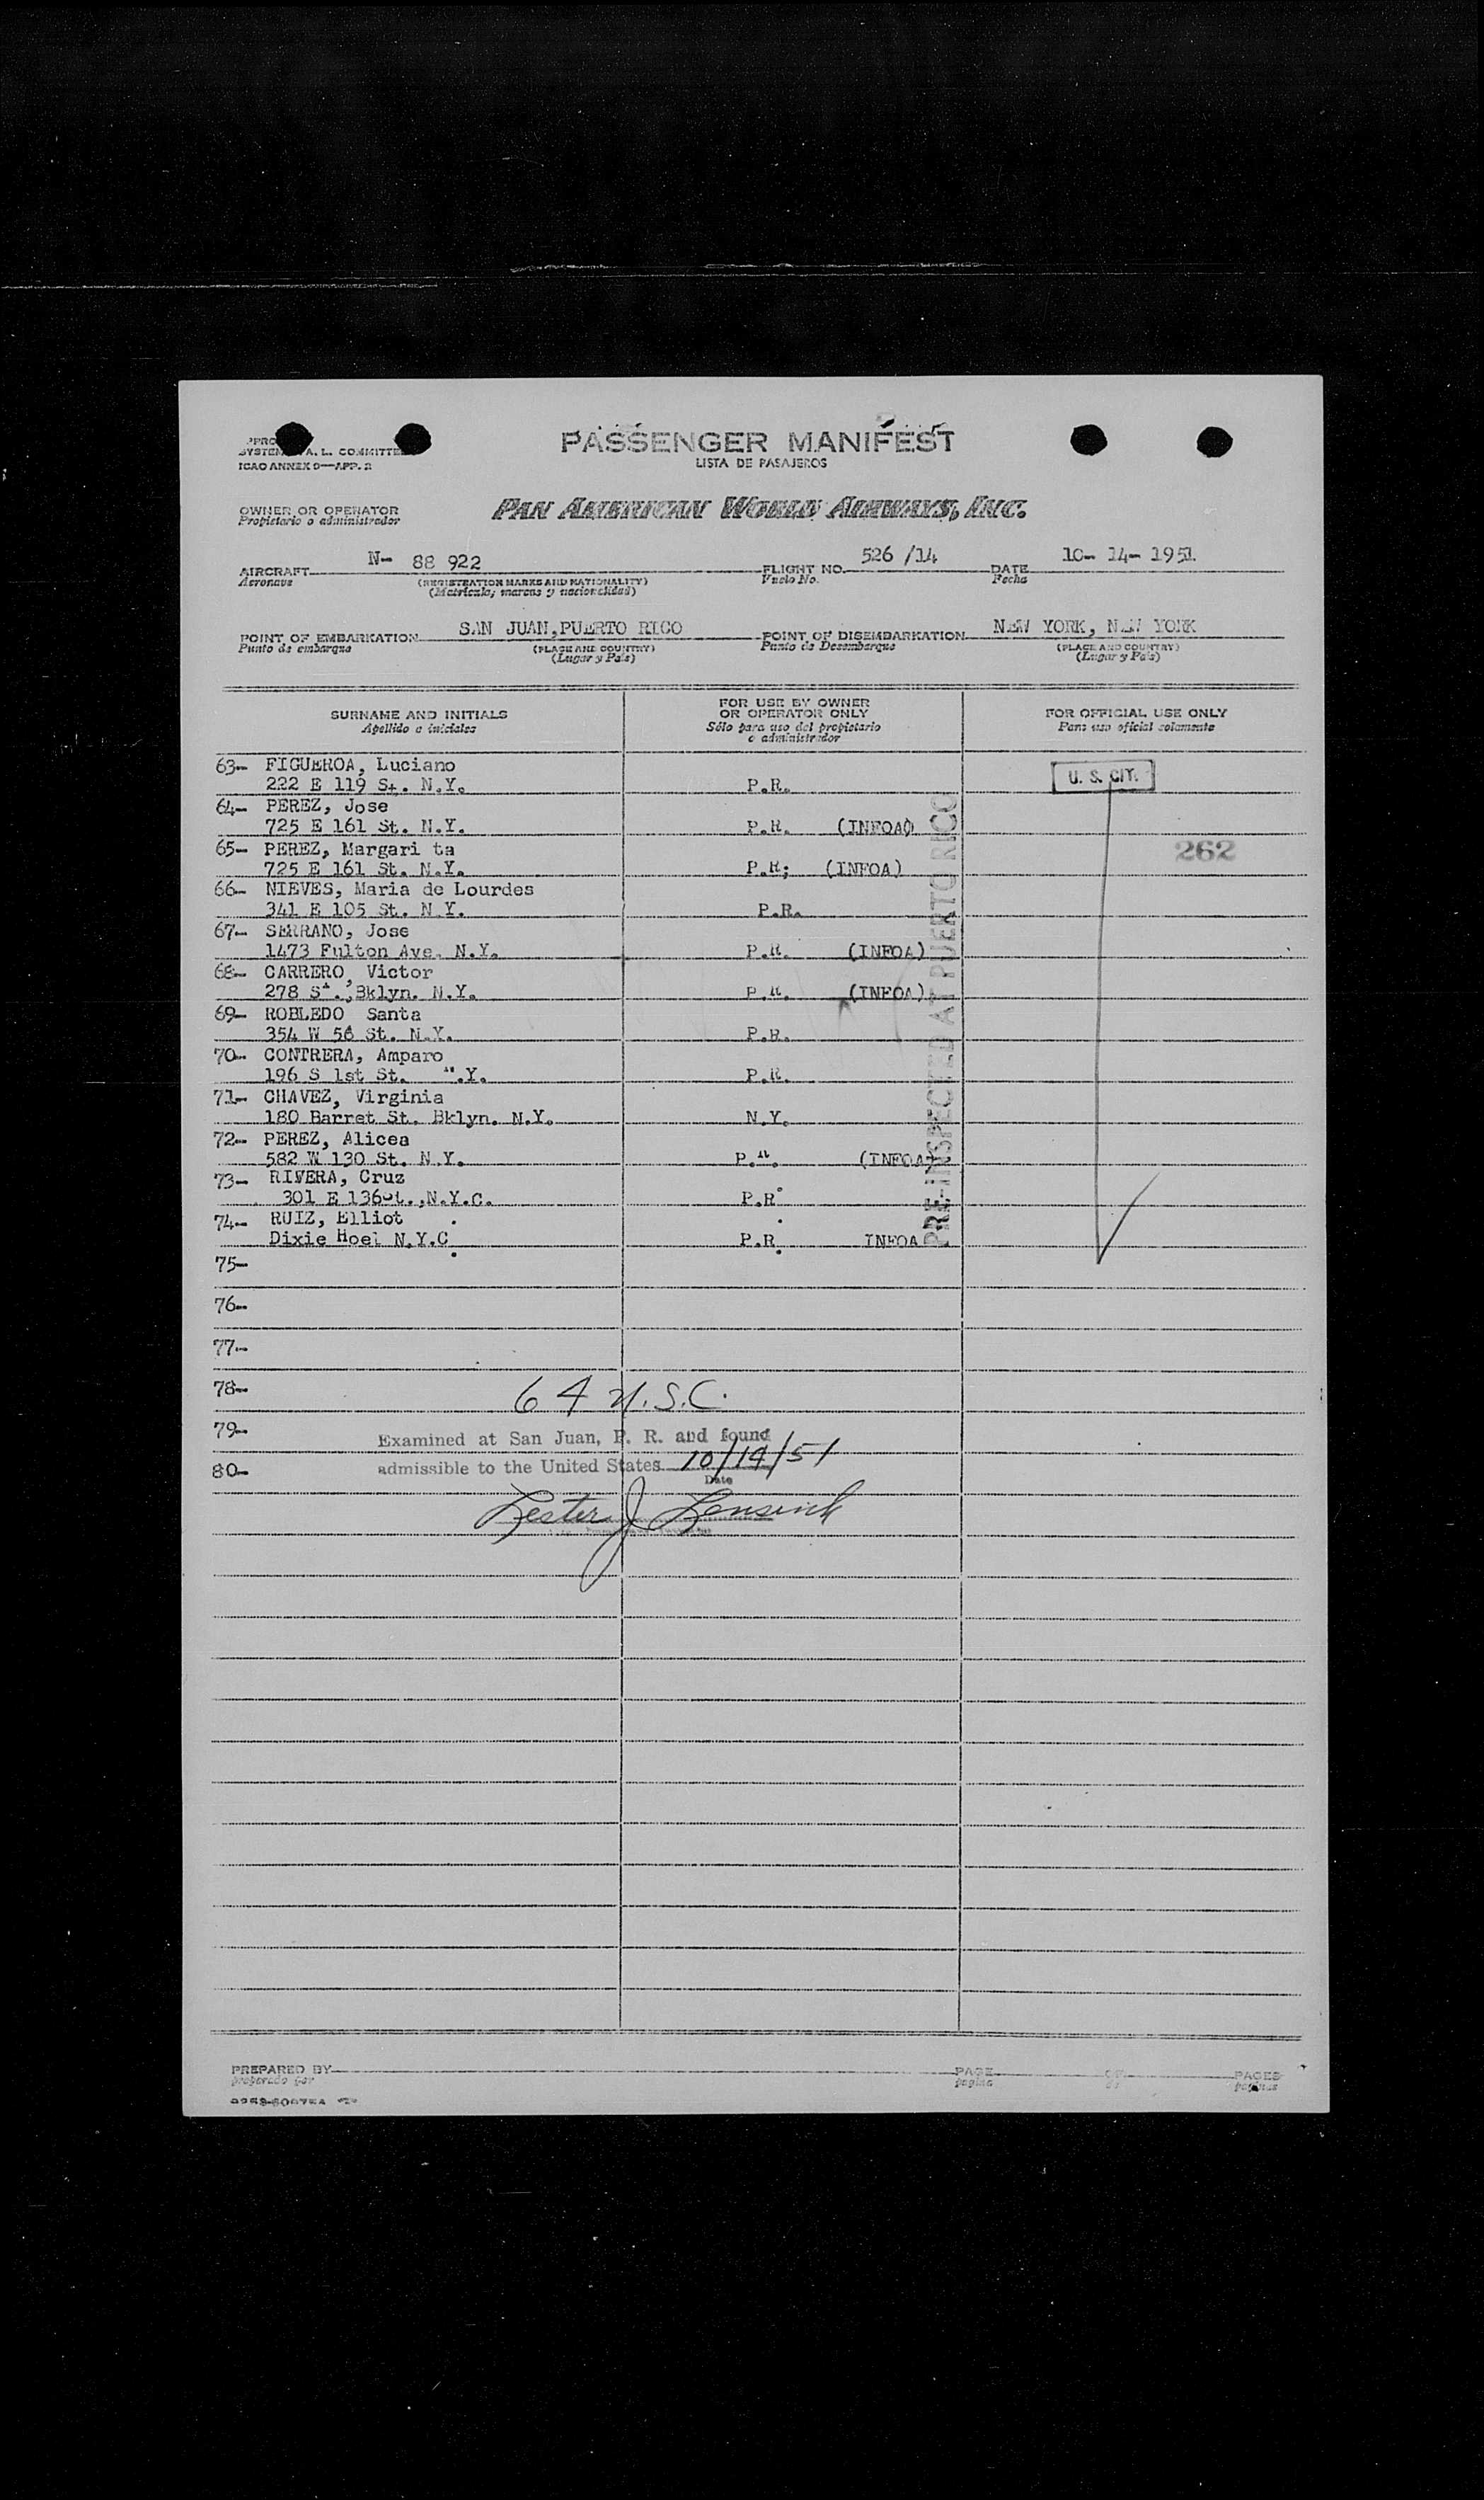 PASSENGER MANIFEST
LISTA DE PASAJEROS
A. L. COMMITTEE
ICAO ANNEX 9—APP. 2
OWNER OR OPERATOR
Propietario o administrador
PAN AMERICAN WORLD AIRWAYS, INC.
AIRCRAFT N- 88 922 FLIGHT NO. 526 /14 DATE 10- 14- 1951
Aeronave (REGISTRATION MARKS AND NATIONALITY) Vuelo No. Fecha
(Matricula, marcas y nacionalidad)
POINT OF EMBARKATION SAN JUAN, PUERTO RICO POINT OF DISEMBARKATION NEW YORK, NEW YORK
Punto de embarque (PLACE AND COUNTRY) Punto de Desembarque (PLACE AND COUNTRY)
(Lugar y País) (Lugar y País)
SURNAME AND INITIALS
Apellido e iniciales
FOR USE BY OWNER
OR OPERATOR ONLY
Sólo para uso del propietario
o administrador
FOR OFFICIAL USE ONLY
Para uso oficial solamente
63- FIGUEROA, Luciano
222 E 119 St. N.Y. P.R. U. S. CIT.
64- PEREZ, Jose
725 E 161 St. N.Y. P.R. (INFOA)
65- PEREZ, Margari ta 262
725 E 161 St. N.Y. P.R; (INFOA)
66- NIEVES, Maria de Lourdes
341 E 105 St. N.Y. P.R.
67- SERRANO, Jose
1473 Fulton Ave. N.Y. P.R. (INFOA)
68- CARRERO, Victor
278 St., Bklyn. N.Y. P.R. (INFOA)
69- ROBLEDO Santa
354 W 58 St. N.Y. P.R.
70- CONTRERA, Amparo
196 S 1st St. N.Y. P.R.
71- CHAVEZ, Virginia
180 Barret St. Bklyn. N.Y. N.Y.
72- PEREZ, Alicea
582 W 130 St. N.Y. P.R. (INFOA)
73- RIVERA, Cruz
301 E 136 St., N.Y.C. P.R.
74- RUIZ, Elliot
Dixie Hoel N.Y.C. P.R. INFOA
PRE-INSPECTED AT PUERTO RICO
75-
76-
77-
78- 64 U.S.C.
79- Examined at San Juan, P. R. and found
80- admissible to the United States 10/14/51
Date
Lester J Lensink
PREPARED BY PAGE OF PAGES
preparado por pagina de paginas